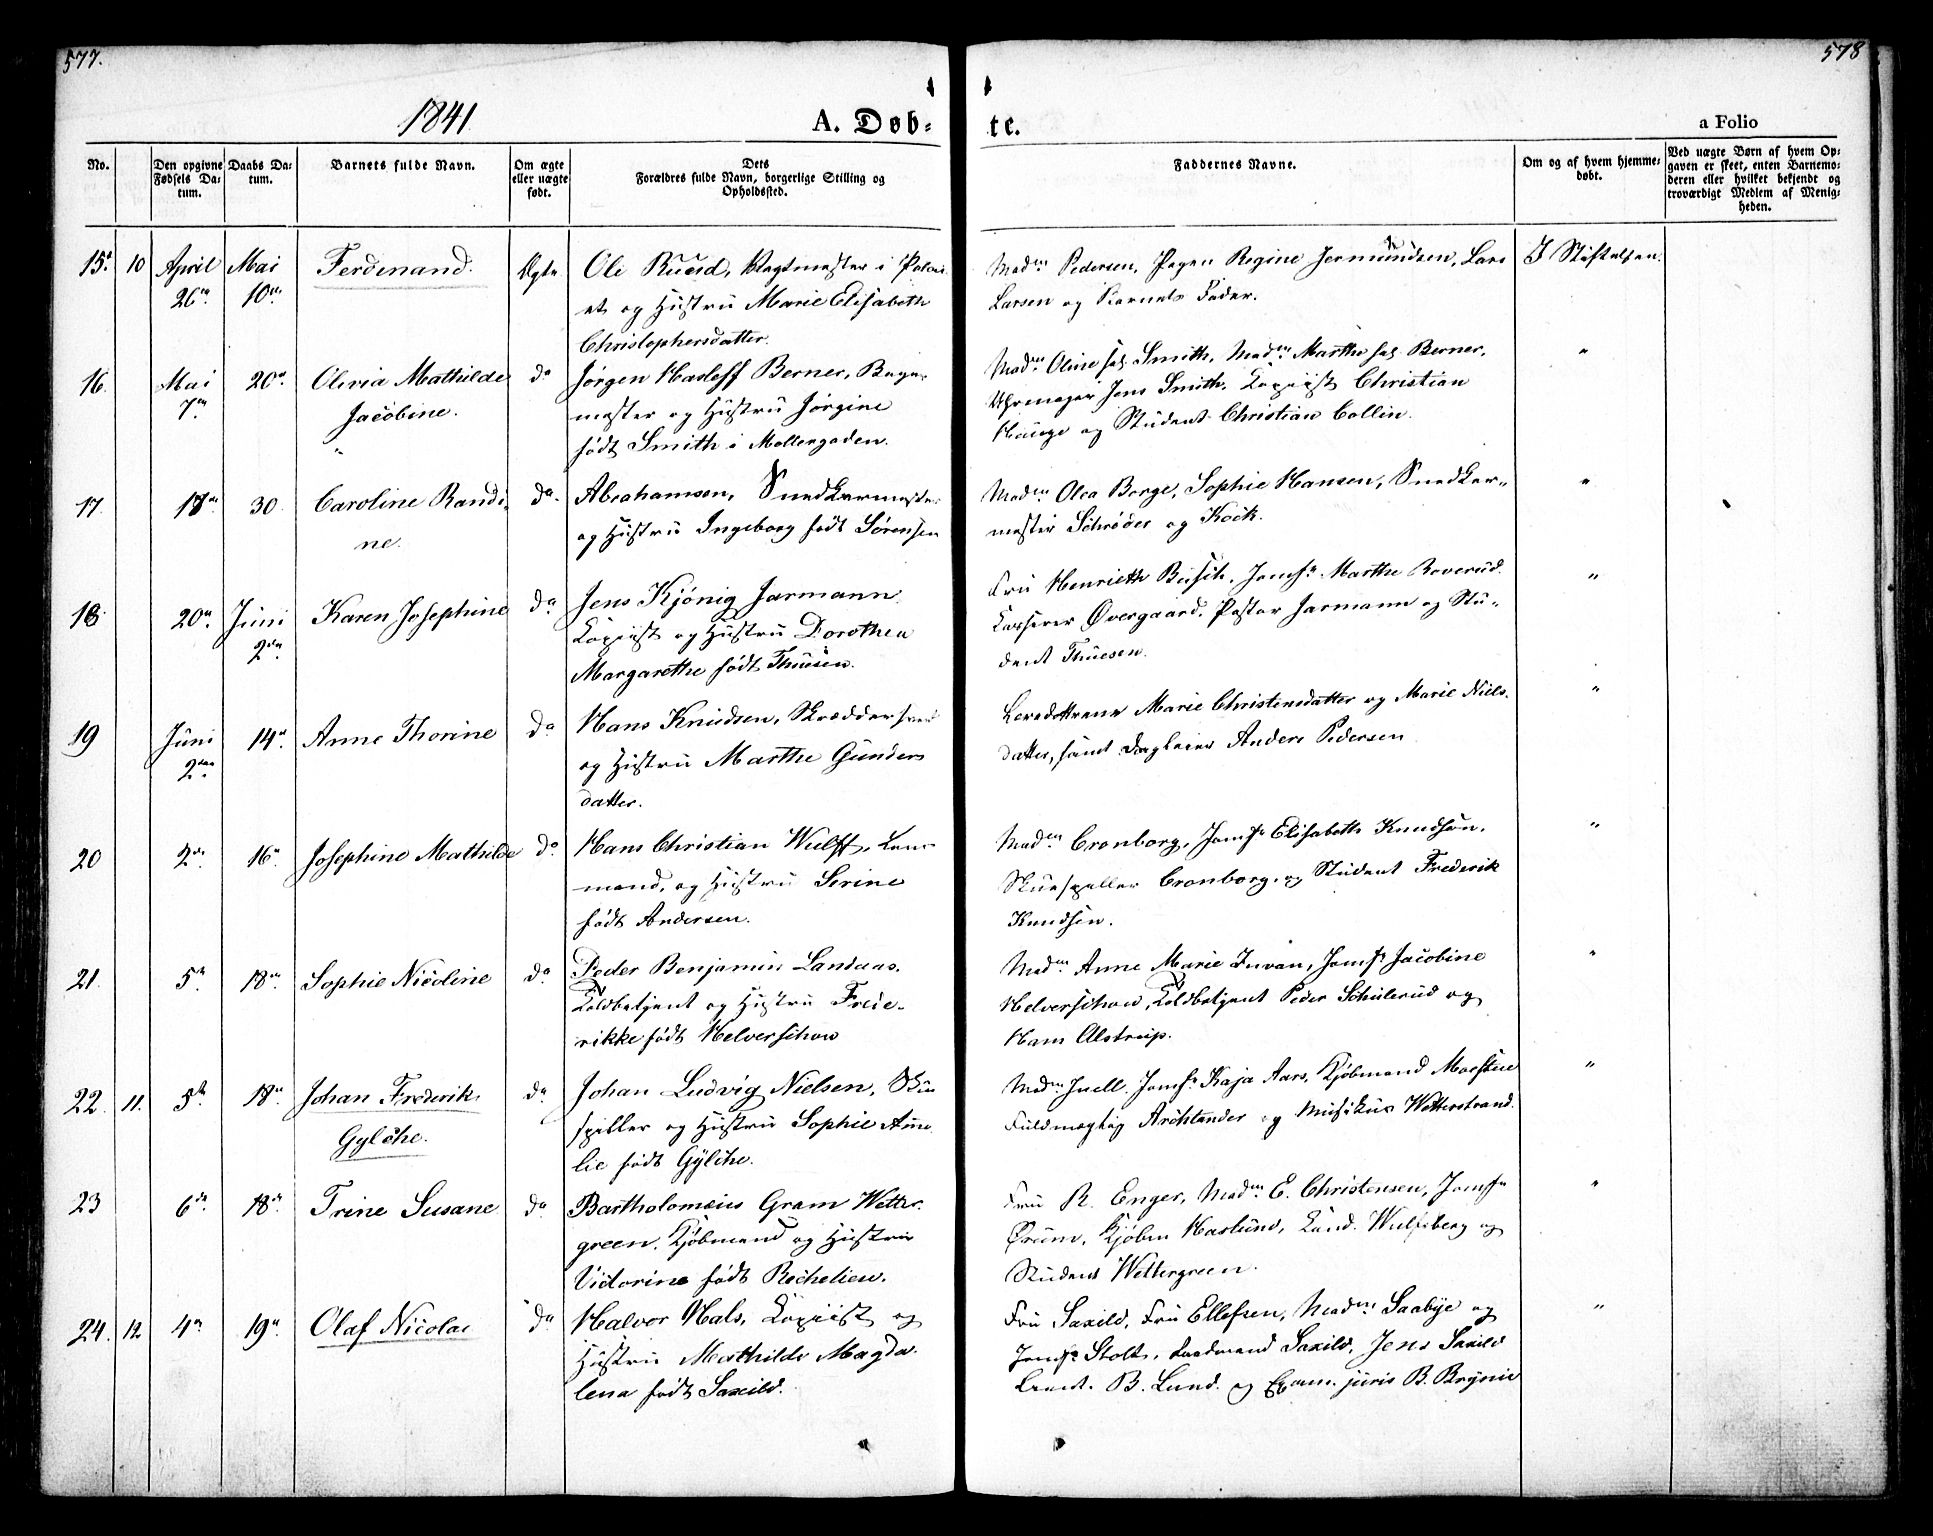 577.
578
1841
A. Døb-
te.
a Folio
No.
Den opgivne Fødsels Datum.
Daabs Datum.
Barnets fulde Navn.
Om ægte eller uægte født.
Dets Forældres fulde Navn, borgerlige Stilling og Opholdssted.
Faddernes Navne.
Om og af hvem hjemmedøbt.
Ved uægte Børn af hvem Opgaven er skeet, enten Barnemoderen eller hvilket bekjendt og troværdigt Medlem af Menigheden.
15. 10 April 26 Mai 10 Ferdinand. Ægte
Ole Ruud, Vagtmester i Palai-
et og Hustru Marie Elisabeth
Christophersdatter.
Mad. Pedersen, Pigen Regine Jermundsen, Lars
Larsen og Barnets Fader.
I Stiftelsen.
16. Mai 7 20 Olivia Mathilde do
Jacobine.
Jørgen Harloff Berner, Byg-
mester og Hustru Jørgine
født Smith i Møllergaden.
Mad. Oline Smith, Mad. Marthe Berner,
Uhrmager Jens Smith, Copiist Christian
Hauge og Student Christian Collin.
"
17. 18 30. Caroline Randi- do
ne.
Abrahamsen, Snedkermester
og Hustru Ingeborg født Sørensen
Mad. Olea Borge, Sophie Hansen, Snedker-
mester Schrøder og Kock.
"
18 20 Juni 2 Karen Josephine do
Jens Kjønig Jarmann
Copiist og Hustru Dorothea
Margarethe født Thuesen.
Fru Henriette Busch, Jomf. Marthe Roverud
Kasserer Øvergaard, Pastor Jarmann og Stu-
dent Thuesen.
"
19 Juni 2 14 Anne Thorine do
Hans Knudsen, Skræddersvend
og Hustru Marthe Gunders
datter.
Marie Christensdatter og Marie Niels-
datter, samt Dagleier Anders Pedersen
"
20 2 16 Josephine Mathilde do
Hans Christian Wulff,
mand, og Hustru Serine
født Andersen.
Mad. Cronborg, Jomf. Elisabeth Knudsen,
Skuespiller Cronborg, og Student Frederik
Knudsen.
"
21. 5 18 Sophie Nicoline do
Peder Benjamin Landaas.
Toldbetjent og Hustru Frede-
rikke født Helverschou
Mad. Anne Marie Juvan, Jomf. Jacobine
Helverschou, Toldbetjent Peder Schulerud og
Hans Alstrup.
"
22. 11. 5 18 Johan Frederik do
Gylche.
Johan Ludvig Nielsen, Skue
spiller og Hustru Sophie Ame
lie født Gylche.
Mad. Juell. Jomf. Kaja Aars, Kjøbmand Marstue
Fuldmægtig Archtander og Musikus Wetterstrand.
"
23 6 18 Trine Susane do
Bartholomæus Gram Wetter-
green. Kjøbmand og Hustru
Victorine født Rechelieu.
Fru R. Enger, Mad. E. Christensen, Jomf.
Ørum, Kjøbm Haslund, Cand. Wulfsberg og
Student Wettergreen.
"
24. 12 4 19 Olaf Nicolai do
Halvor Hals, Copiist og
Hustru Mathilde Magda-
lena født Saxild.
Fru Saxild, Fru Ellefsen, Mad. Saabye og
Jomf. Stolt, Saxild, Jens Saxild
B. Lund. og Exam. juris B. Brynie
"